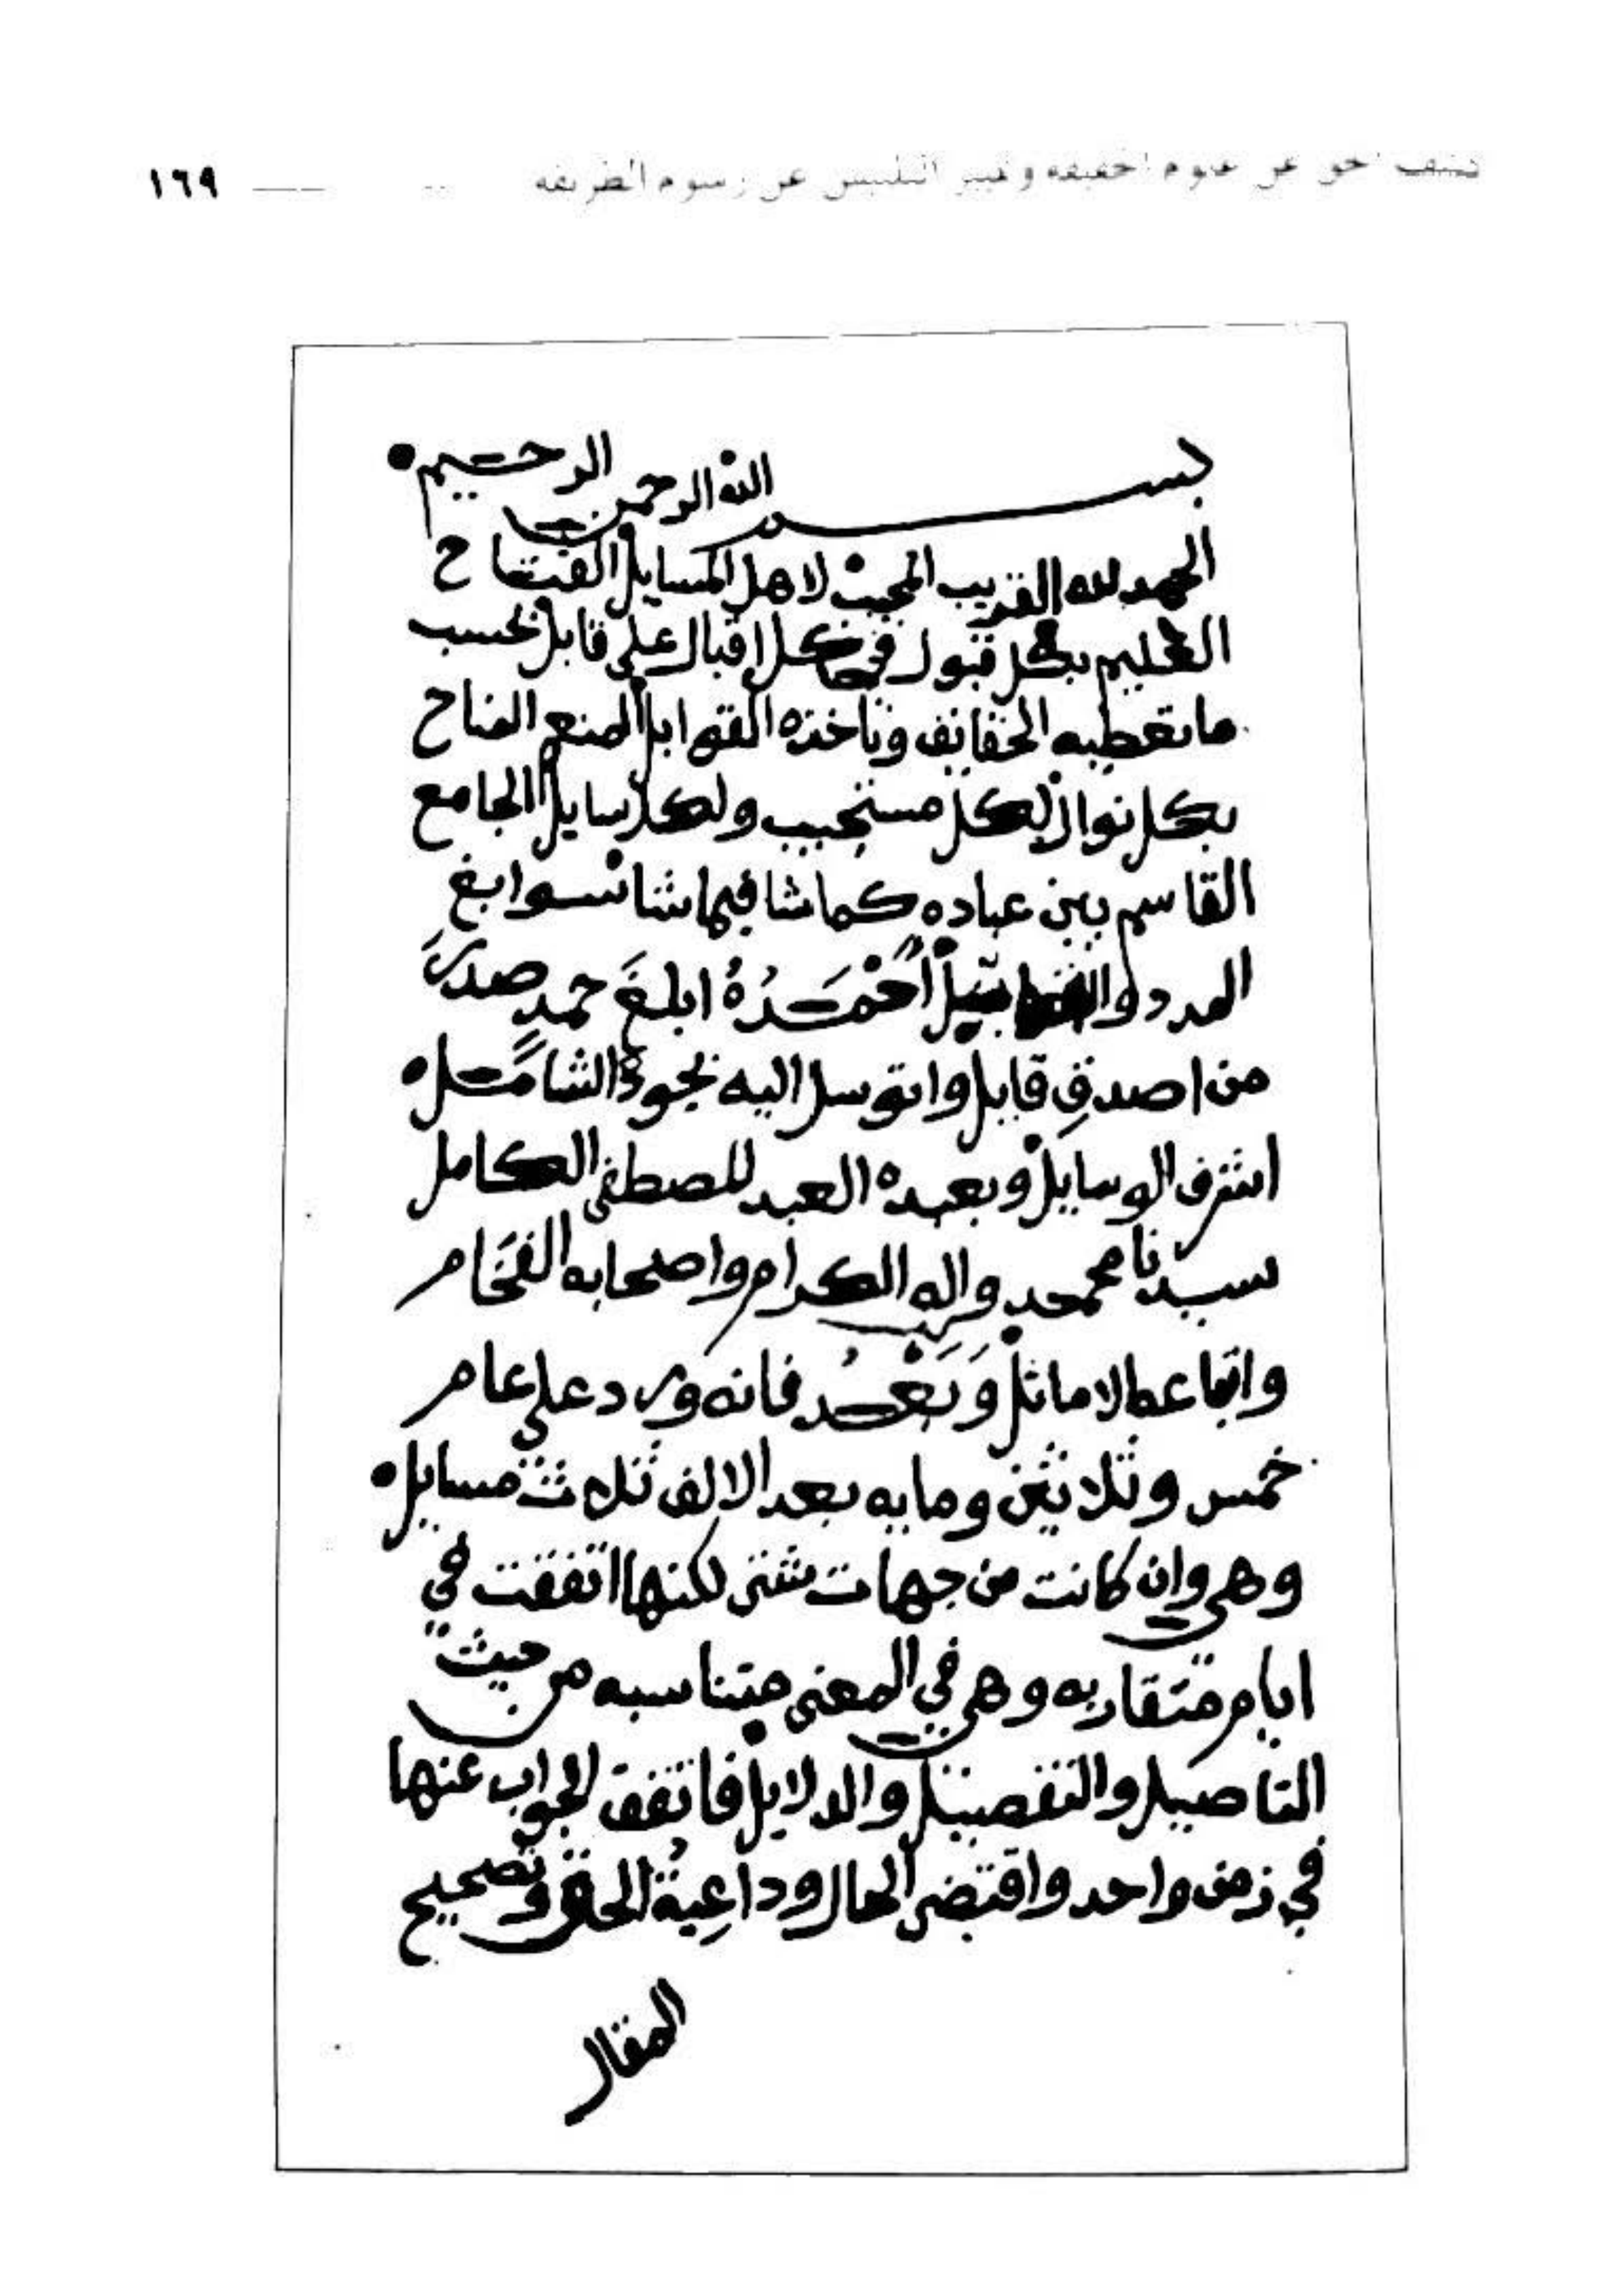 كشف الحق عن علوم الحقيقة وتمييز التلبيس عن رسوم الطريقة ١٦٩
بسم الله الرحمن الرحيم
الحمد لله القريب المجيب لاهل المسايل الفتاح
العليم بكل قبول في كل اقبال على قابل بحسب
ما تعطيه الحقائق وتاخذه القوابل المنع المناح
بكل نوال لكل مستجيب ولكل سايل الجامع
القاسم بين عباده كما شا فيما شا سوابغ
المدد احمده ابلغ حمد صدر
من اصدق قابل واتوسل اليه بجوده الشامل
اشرف الوسايل وبعبده العبد المصطفى الكامل
سيدنا محمد واله الكرام واصحابه الفخام
واتباعه الاماثل وبعد فانه ورد على عام
خمس وثلاثين ومايه بعد الالف ثلاث مسايل
وهي وان كانت من جهات شتى لكنها اتفقت في
ايام متقاربه وهي في المعنى متناسبه من حيث
التاصيل والتفصيل والدلايل فاتفق الجواب عنها
في زمن واحد واقتضى الحال وداعية الحق وتصحيح
المقال